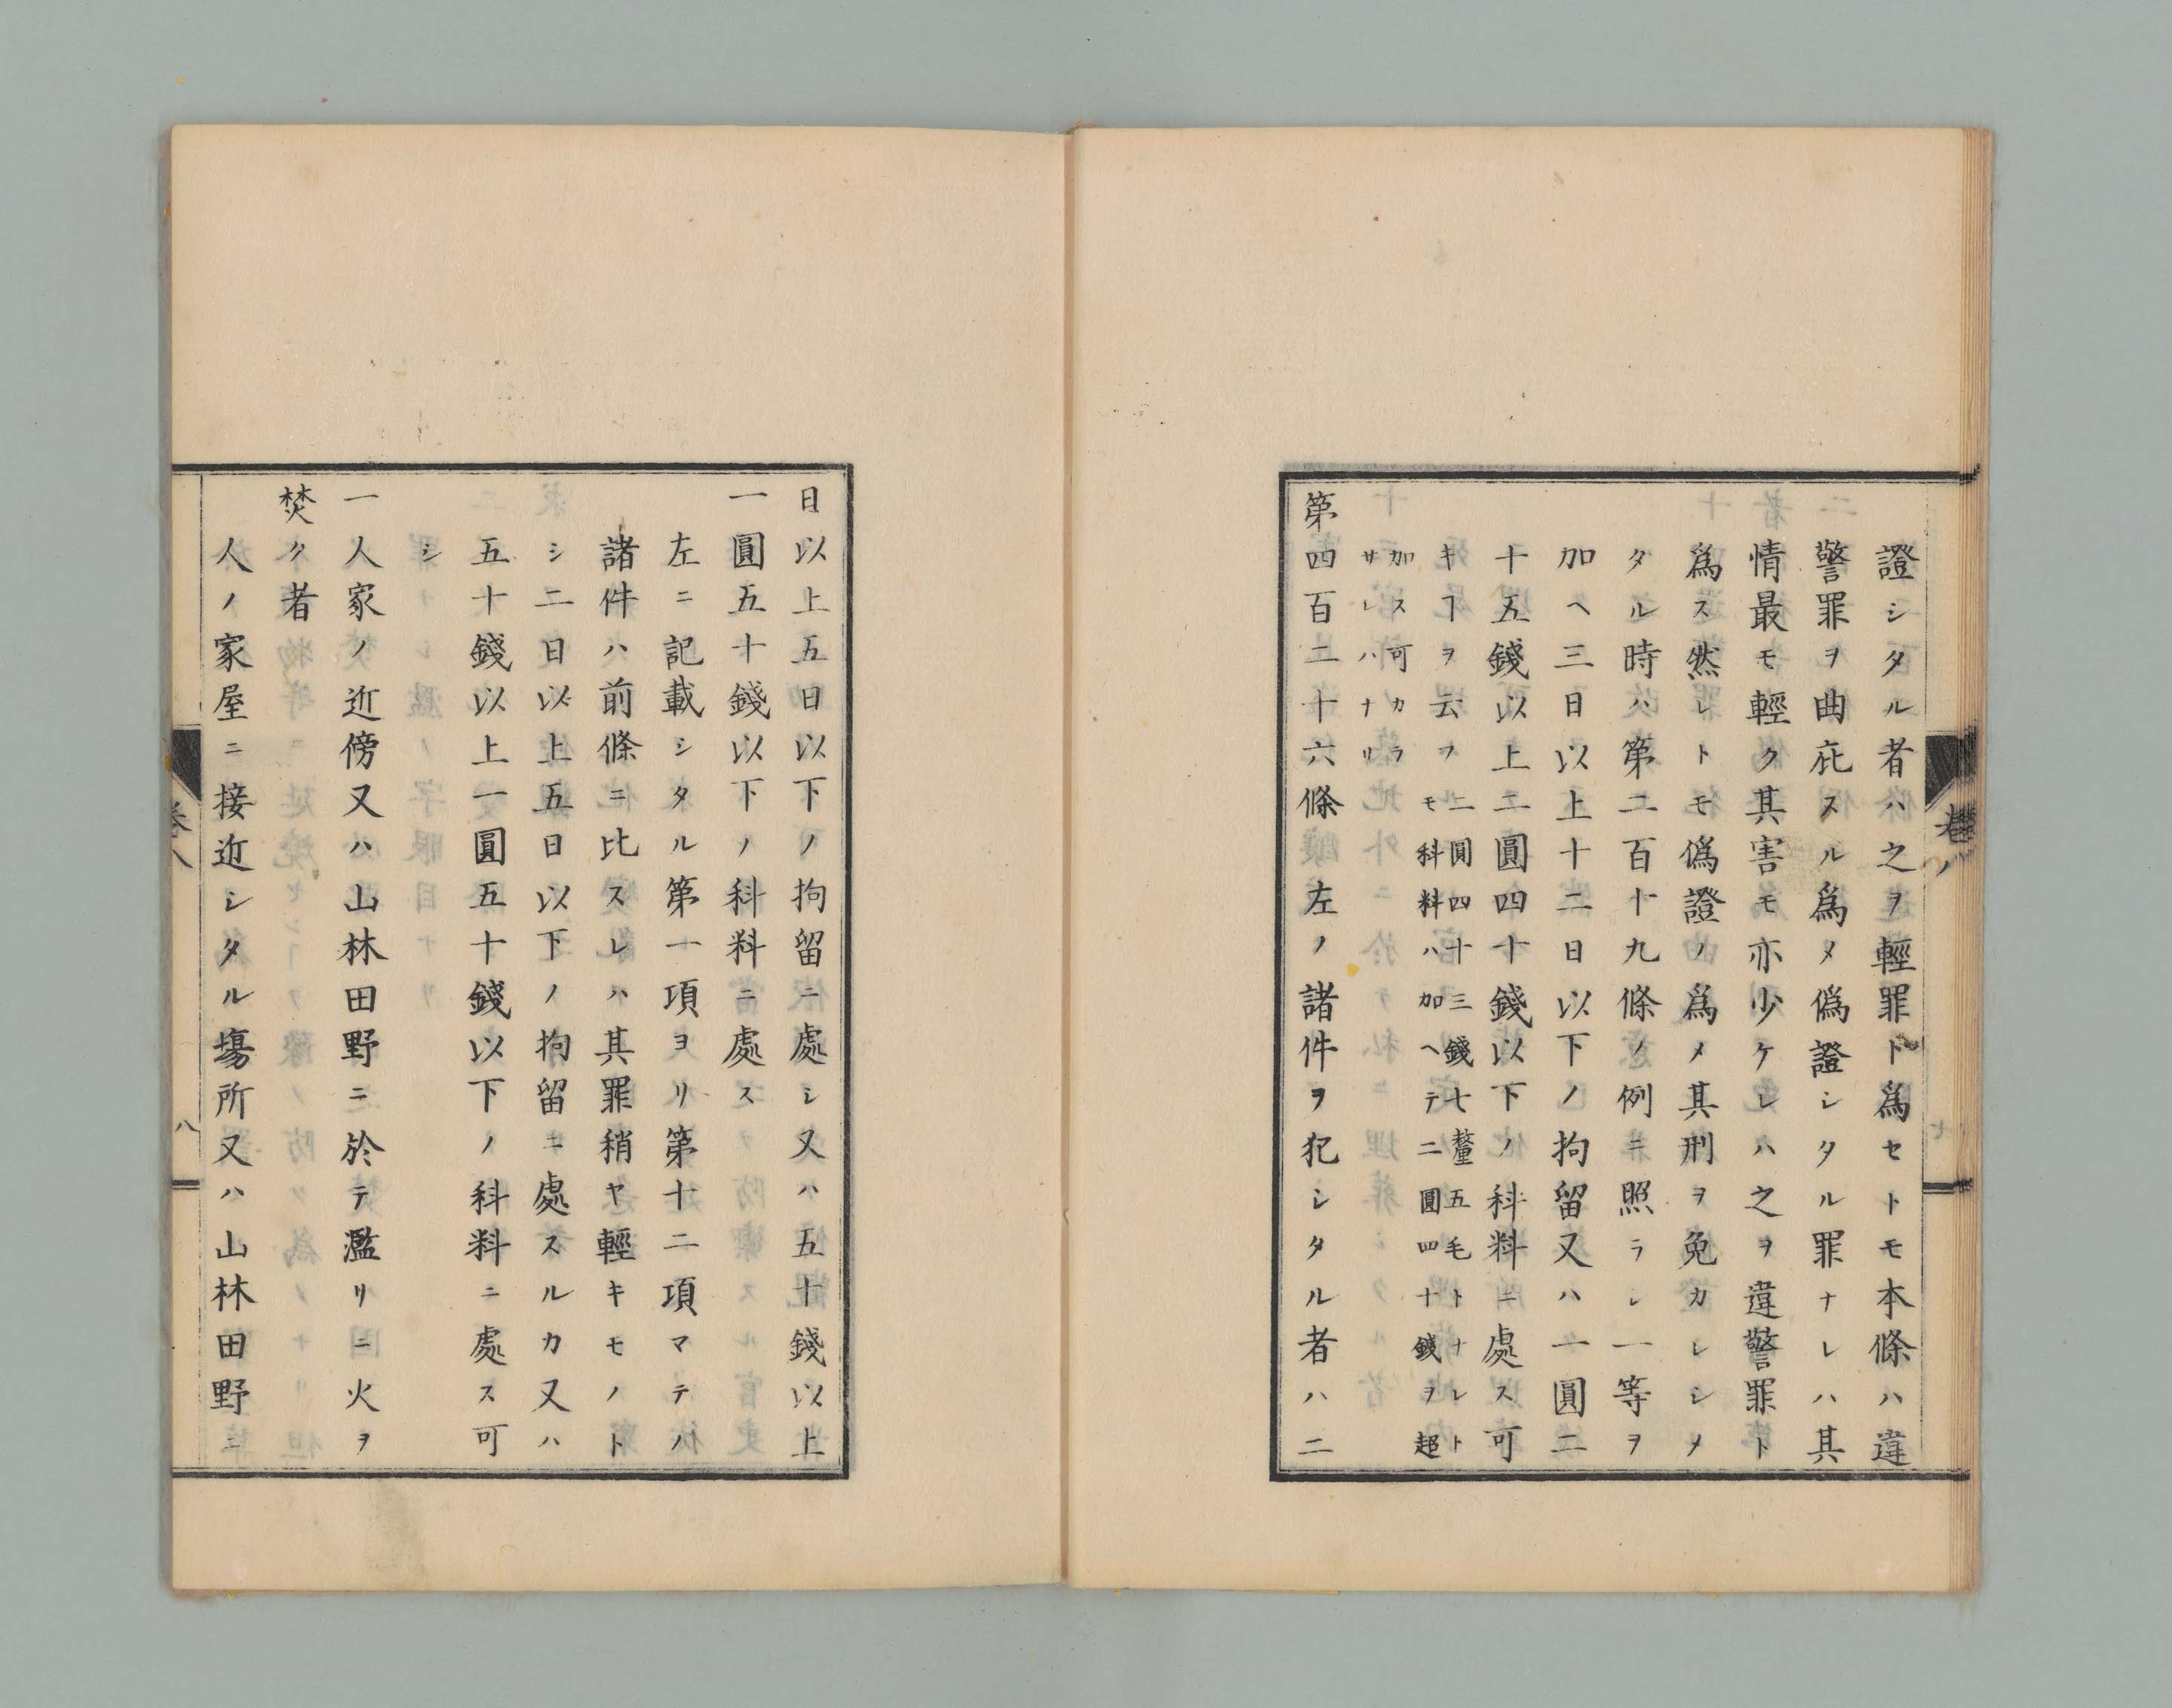 證シタル者ハ之ヲ輕罪ト爲セトモ本條ハ違
警罪ヲ曲庇スル爲メ僞證シタル罪ナレハ其
情最モ輕ク其害モ亦少ケレハ之ヲ違警罪ト
爲ス然レトモ僞證ノ爲メ其刑ヲ免カレシメ
タル時ハ第二百十九條ノ例ニ照ラシ一等ヲ
加ヘ三日以上十二日以下ノ拘留又ハ一圓二
十五錢以上二圓四十錢以下ノ科料ニ處ス可
キヿヲ云フ
二圓四十三錢七釐五毛トナレト
モ科料ハ加ヘテ二圓四十錢ヲ超
加ス可カラ
サレハナリ
第四百二十六條左ノ諸件ヲ犯シタル者ハ二
卷八
日以上五日以下ノ拘留ニ處シ又ハ五十錢以上
一圓五十錢以下ノ科料ニ處ス
左ニ記載シタル第一項ヨリ第十二項マテノ
諸件ハ前條ニ比スレハ其罪稍ヤ輕キモノト
シ二日以上五日以下ノ拘留ニ處スルカ又ハ
五十錢以上一圓五十錢以下ノ科料ニ處ス可
シ
一人家ノ近傍又ハ山林田野ニ於テ濫リニ火ヲ
焚ク者
人ノ家屋ニ接近シタル場所又ハ山林田野ニ
卷八
八